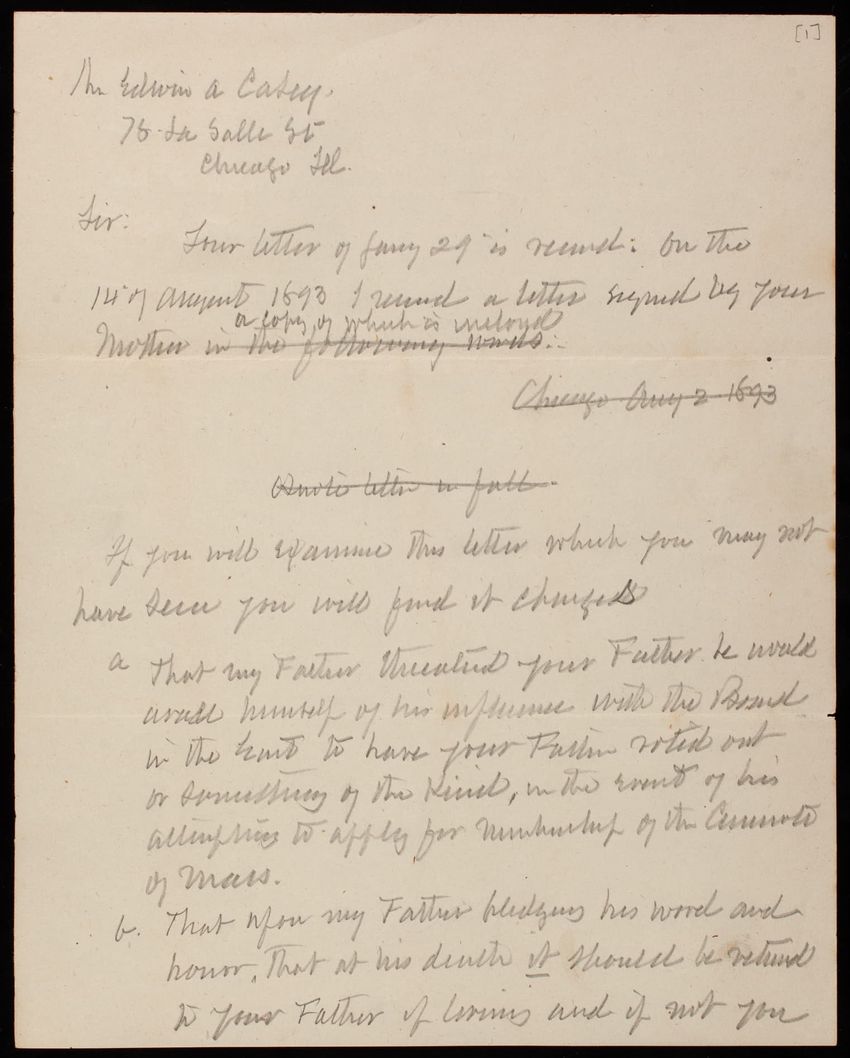 [1]
Mr Edwin A Casey.
78 La Salle St
Chicago Ill.
Sir:
Your letter of Jany 29" is recevd. On the
14" of August 1893 I recevd a letter signed by your
a copy of which is inclosed
Mother in the following words:-
Chicago Aug 2 1893
Quote letter in full.
If you will examine this letter which you may not
have seen you will find it charges
a That my Father threatened your Father he would
avail himself of his influence with the Board
in the East to have your Father voted out
or something of the Kind, in the event of his
attempting to apply for membership of the Cincinnati
of Mass.
b. That upon my Father pledging his word and
honor, that at his death it should be returnd
to your Father if living and if not you